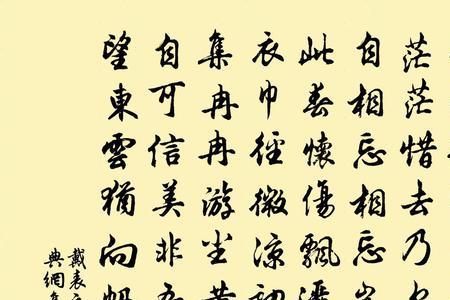 茫茫惜去乃
自相忘相忘
此春懷傷飄
衣巾徑微涼初
集冉冉游尘
自可信美非吾
望東雲猶向
戴表
典網